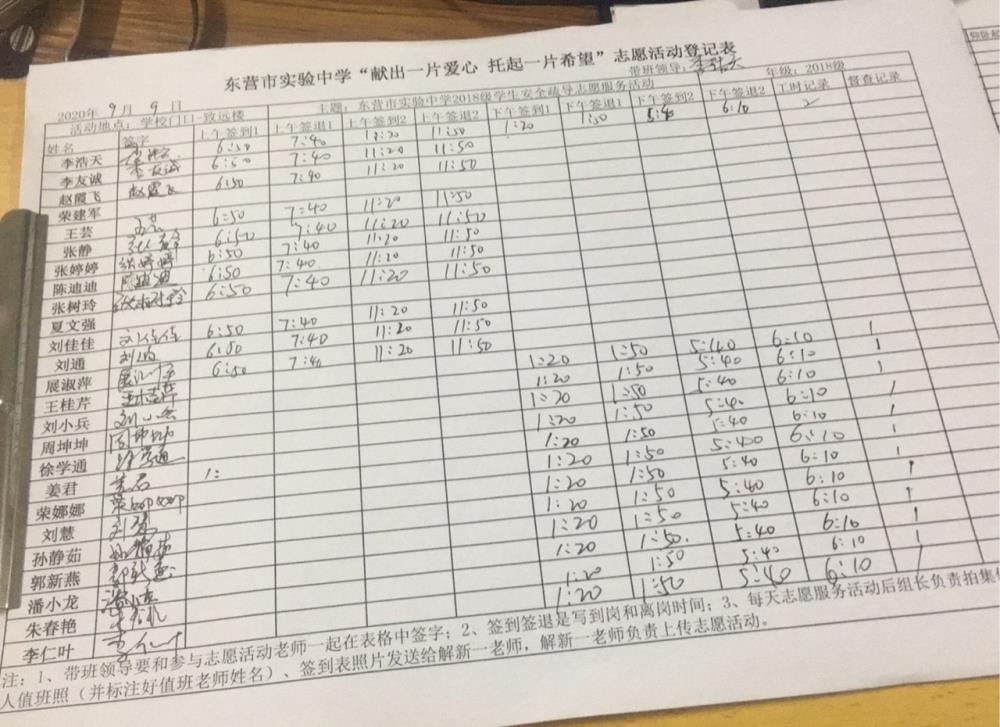 东营市实验中学“献出一片爱心 托起一片希望”志愿活动登记表
2020年 9月 9日 带班领导: 年级: 2018级
活动地点: 学校门口-致远楼 主题: 东营市实验中学2018级学生安全疏导志愿服务活动
姓名 签字 上午签到1 上午签退1 上午签到2 上午签退2 下午签到1 下午签退1 下午签到2 下午签退2 工时记录 督查记录
李浩天 6:50 7:40 11:20 11:50 1:20 1:50 5:40 6:10 2
李友诚 李友诚 6:50 7:40 11:20 11:50
赵霞飞 赵霞飞 6:50 7:40 11:20 11:50
荣建军
王芸 王芸 6:50 7:40 11:20 11:50
张静 张静 6:50 7:40 11:20 11:50
张婷婷 张婷婷 6:50 7:40 11:20 11:50
陈迪迪 陈迪迪 6:50 7:40 11:20 11:50
张树玲 张树玲 6:50 7:40 11:20 11:50
夏文强
刘佳佳 刘佳佳 6:50 7:40 11:20 11:50
刘通 刘通 6:50 7:40 11:20 11:50
展淑萍 6:50 7:40 11:20 11:50
王桂芹 王桂芹 1:20 1:50 5:40 6:10 1
刘小兵 刘小兵 1:20 1:50 5:40 6:10 1
周坤坤 周坤坤 1:20 1:50 5:40 6:10 1
徐学通 徐学通 1:20 1:50 5:40 6:10 1
姜君 姜君 1: 1:20 1:50 5:40 6:10 1
荣娜娜 荣娜娜 1:20 1:50 5:40 6:10 1
刘慧 刘慧 1:20 1:50 5:40 6:10 1
孙静茹 孙静茹 1:20 1:50 5:40 6:10 1
郭新燕 郭新燕 1:20 1:50 5:40 6:10 1
潘小龙 潘小龙 1:20 1:50 5:40 6:10 1
朱春艳 1:20 1:50 5:40 6:10 1
李仁叶 李仁叶 1:20 1:50 5:40 6:10 1
注: 1、带班领导要和参与志愿活动老师一起在表格中签字; 2、签到签退是写到岗和离岗时间; 3、每天志愿服务活动后组长负责拍集体
人值班照（并标注好值班老师姓名）、签到表照片发送给解新一老师，解新一老师负责上传志愿活动。